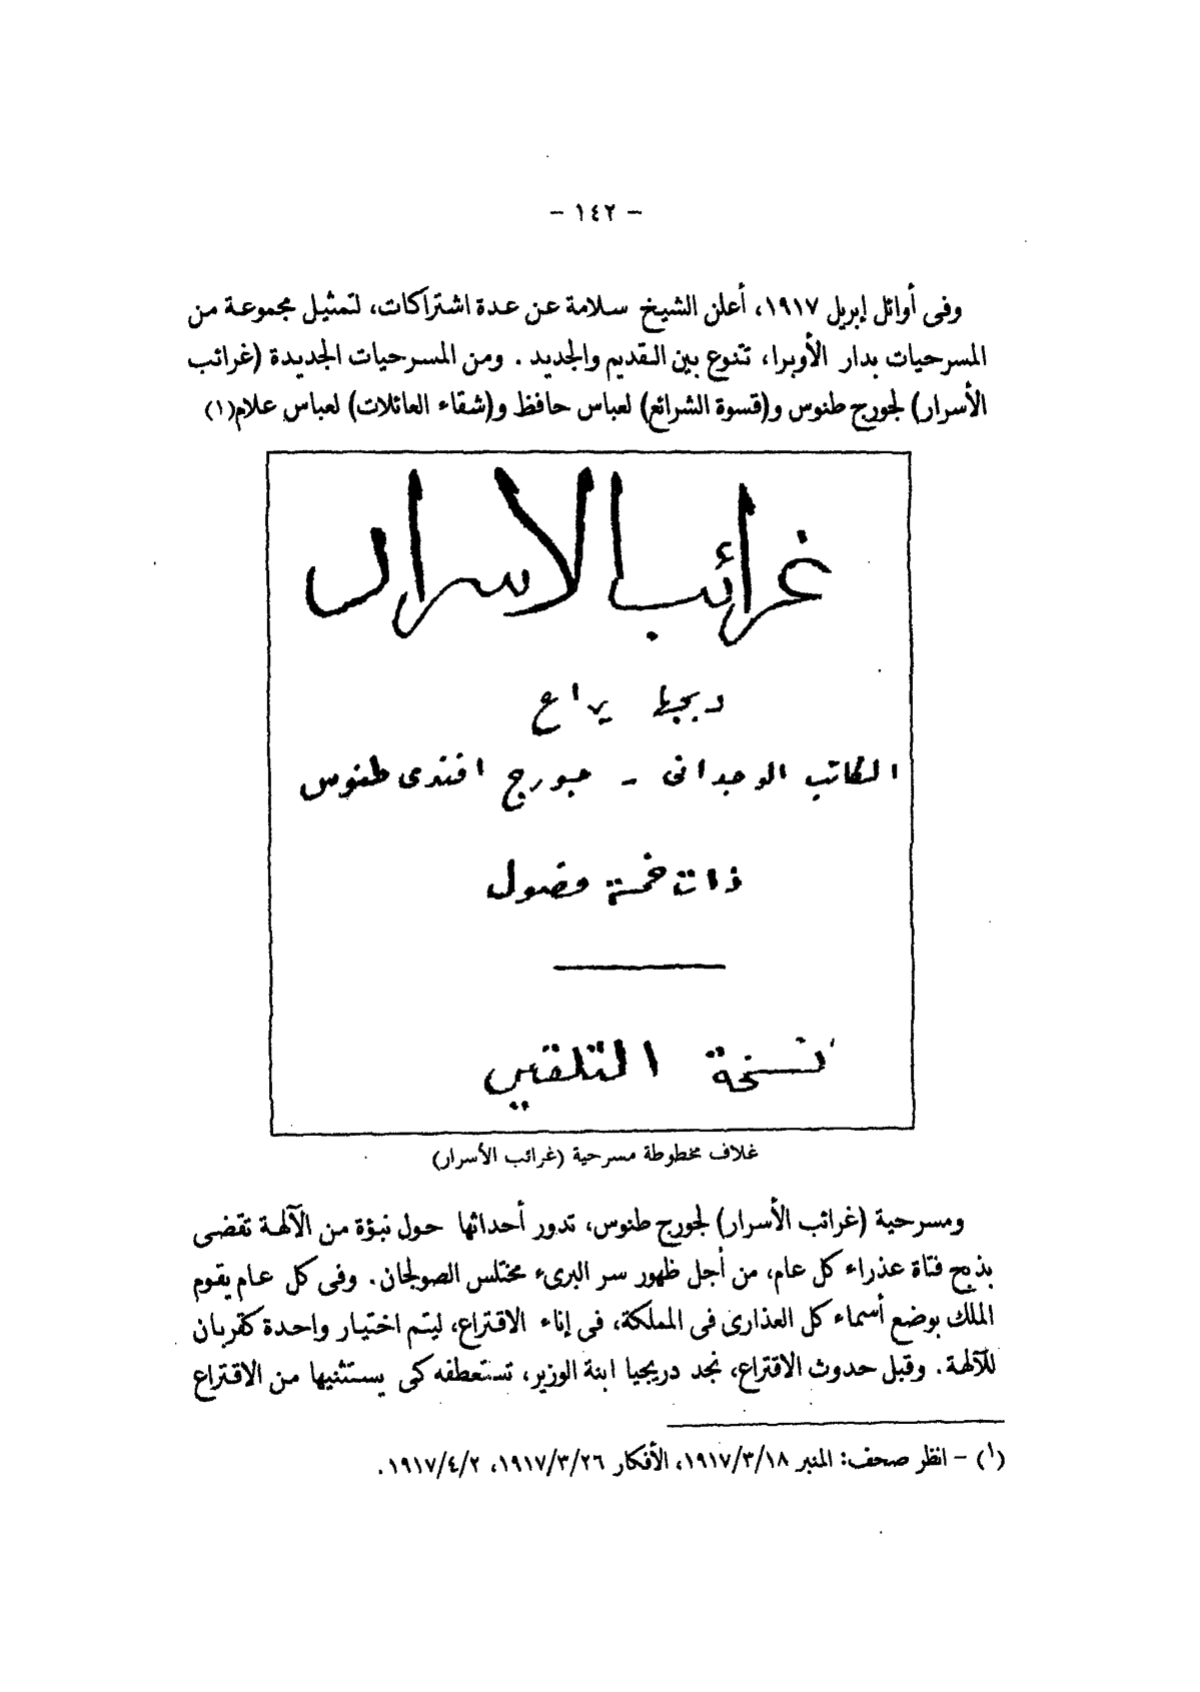 - ١٤٢ -
وفى أوائل إبريل ١٩١٧، أعلن الشيخ سلامة عن عدة اشتراكات، لتمثيل مجموعة من
المسرحيات بدار الأوبرا، تتنوع بين القديم والجديد . ومن المسرحيات الجديدة (غرائب
الأسرار) لجورج طنوس و(قسوة الشرائع) لعباس حافظ و(شقاء العائلات) لعباس علام(١)
غرائب الاسرار
دبجها يراع
الكاتب الوجدانى - جورج افندى طنوس
ذات خمسة فصول
نسخة التلقين
غلاف مخطوطة مسرحية (غرائب الأسرار)
ومسرحية (غرائب الأسرار) لجورج طنوس، تدور أحداثها حول نبؤة من الآلهة تقضى
بذبح فتاة عذراء كل عام، من أجل ظهور سر البرىء مختلس الصولجان. وفى كل عام يقوم
الملك بوضع أسماء كل العذارى فى المملكة، فى إناء الاقتراع، ليتم اختيار واحدة كقربان
للآلهة. وقبل حدوث الاقتراع، نجد دريجيا ابنة الوزير، تستعطفه كى يستثنيها من الاقتراع
(١) - انظر صحف: المنبر ١٩١٧/٣/١٨، الأفكار ١٩١٧/٣/٢٦، ١٩١٧/٤/٢.